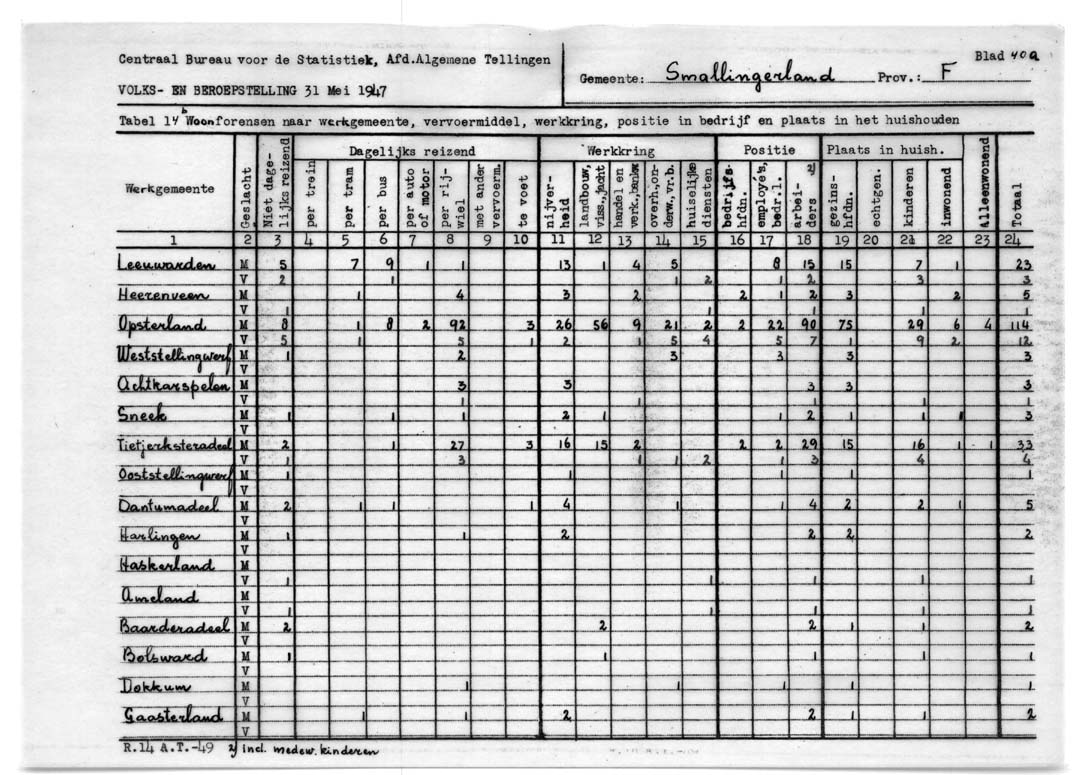 Centraal Bureau voor de Statistiek, Afd.Algemene Tellingen
VOLKS- EN BEROEPSTELLING 31 Mei 1947
Gemeente: Smallingerland Prov.: F
Blad 40a
Tabel 14 b Woonforensen naar werkgemeente, vervoermiddel, werkkring, positie in bedrijf en plaats in het huishouden
Werkgemeente | Geslacht | Niet dage-lijks reizend | Dagelijks reizend: per trein | per tram | per bus | per auto of motor | per rij-wiel | met ander vervoerm. | te voet | Werkkring: nijver-heid | landbouw, viss.,jacht | handel en verk.,bankw | overh.,on-derw.,vr.b. | huiselijke diensten | Positie: bedrijfs-hfdn. | employé's, bedr.l. | arbei-ders 2) | Plaats in huish.: gezins-hfdn. | echtgen. | kinderen | inwonend | Alleenwonend | Totaal
1 | 2 | 3 | 4 | 5 | 6 | 7 | 8 | 9 | 10 | 11 | 12 | 13 | 14 | 15 | 16 | 17 | 18 | 19 | 20 | 21 | 22 | 23 | 24
Leeuwarden M 5 7 9 1 1 13 1 4 5 8 15 15 7 1 23
V 2 1 1 2 1 2 3 3
Heerenveen M 1 4 3 2 2 1 2 3 2 5
V 1 1 1 1 1
Opsterland M 8 1 8 2 92 3 26 56 9 21 2 2 22 90 75 29 6 4 114
V 5 1 5 1 2 1 5 4 5 7 1 9 2 12
Weststellingwerf M 1 2 3 3 3 3
V
Achtkarspelen M 3 3 3 3 3
V 1 1 1 1 1
Sneek M 1 1 1 2 1 1 2 1 1 1 3
V
Tietjerksteradeel M 2 1 27 3 16 15 2 2 2 29 15 16 1 1 33
V 1 3 1 1 2 1 3 4 4
Ooststellingwerf M 1 1 1 1 1
V
Dantumadeel M 2 1 1 1 4 1 1 4 2 2 1 5
V
Harlingen M 1 1 2 2 2 2
V
Haskerland M
V 1 1 1 1 1
Ameland M
V 1 1 1 1 1
Baarderadeel M 2 2 2 1 1 2
V
Bolsward M 1 1 1 1 1
V
Dokkum M 1 1 1 1 1
V
Gaasterland M 1 1 2 2 1 1 2
V
R.14 A.T.-49 2) incl. medew. kinderen